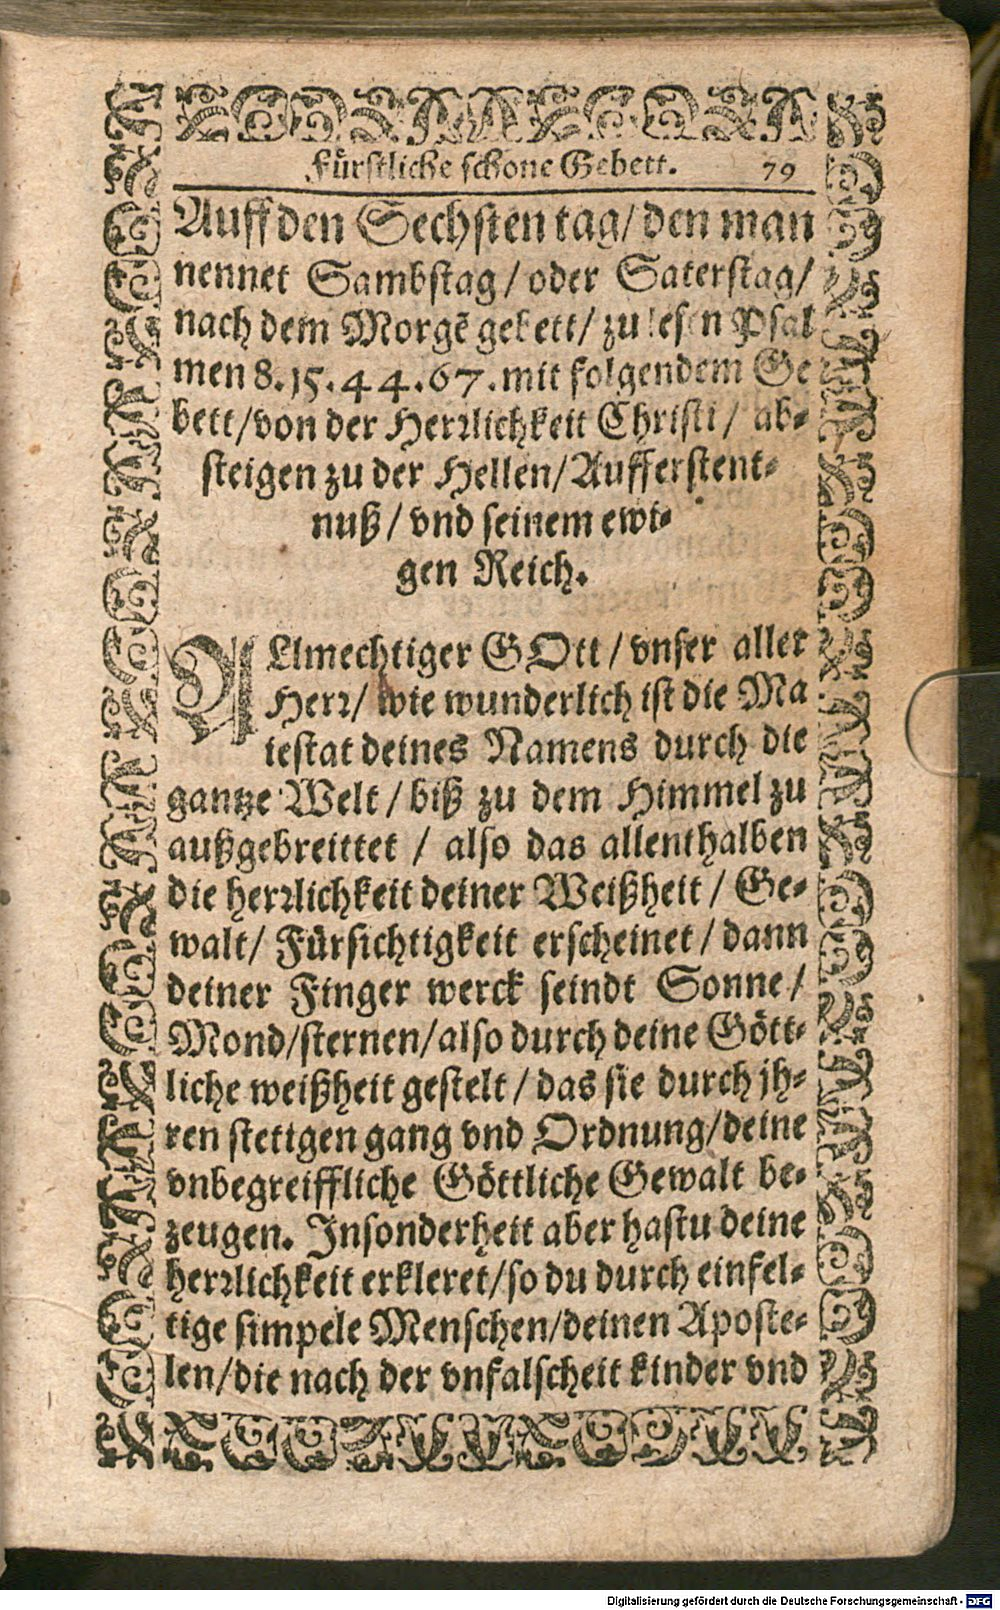 Fürstliche schone Gebett. 79
Auff den Sechsten tag/ den man
nennet Sambstag/ oder Saterstag/
nach dem Morgē gebett/ zu lesen Psal
men 8. 15. 44. 67. mit folgendem Ge
bett/ von der Herrlichkeit Christi/ ab-
steigen zu der Hellen/ Aufferstent-
nuß/ vnd seinem ewi-
gen Reich.
ALlmechtiger GOtt/ vnser aller
Herr/ wie wunderlich ist die Ma
iestat deines Namens durch die
gantze Welt/ biß zu dem Himmel zu
außgebreittet/ also das allenthalben
die herrlichkeit deiner Weißheit/ Ge-
walt/ Fürsichtigkeit erscheinet/ dann
deiner Finger werck seindt Sonne/
Mond/ sternen/ also durch deine Gött-
liche weißheit gestelt/ das sie durch jh-
ren stettgen gang vnd Ordnung/ deine
vnbegreiffliche Göttliche Gewalt be-
zeugen. Insonderheit aber hastu deine
herrlichkeit erkleret/ so du durch einfel-
tige simpele Menschen/ deinen Aposte-
len/ die nach der vnfalscheit kinder vnd
Digitalisierung gefördert durch die Deutsche Forschungsgemeinschaft - DFG